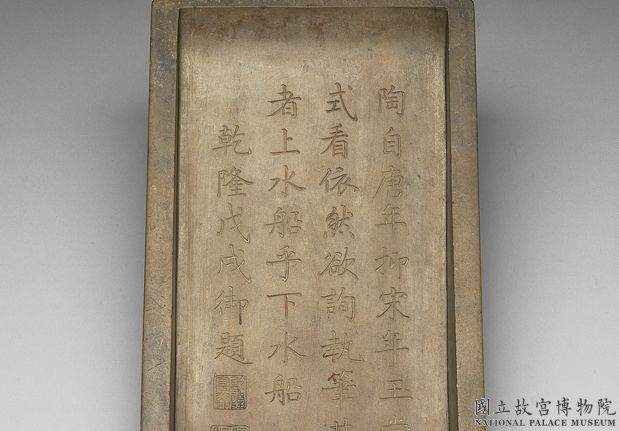 陶自唐年抑宋年玉
式看依然欲詢執筆
者上水船乎下水船
乾隆戊戌御題
國立故宮博物院
NATIONAL PALACE MUSEUM